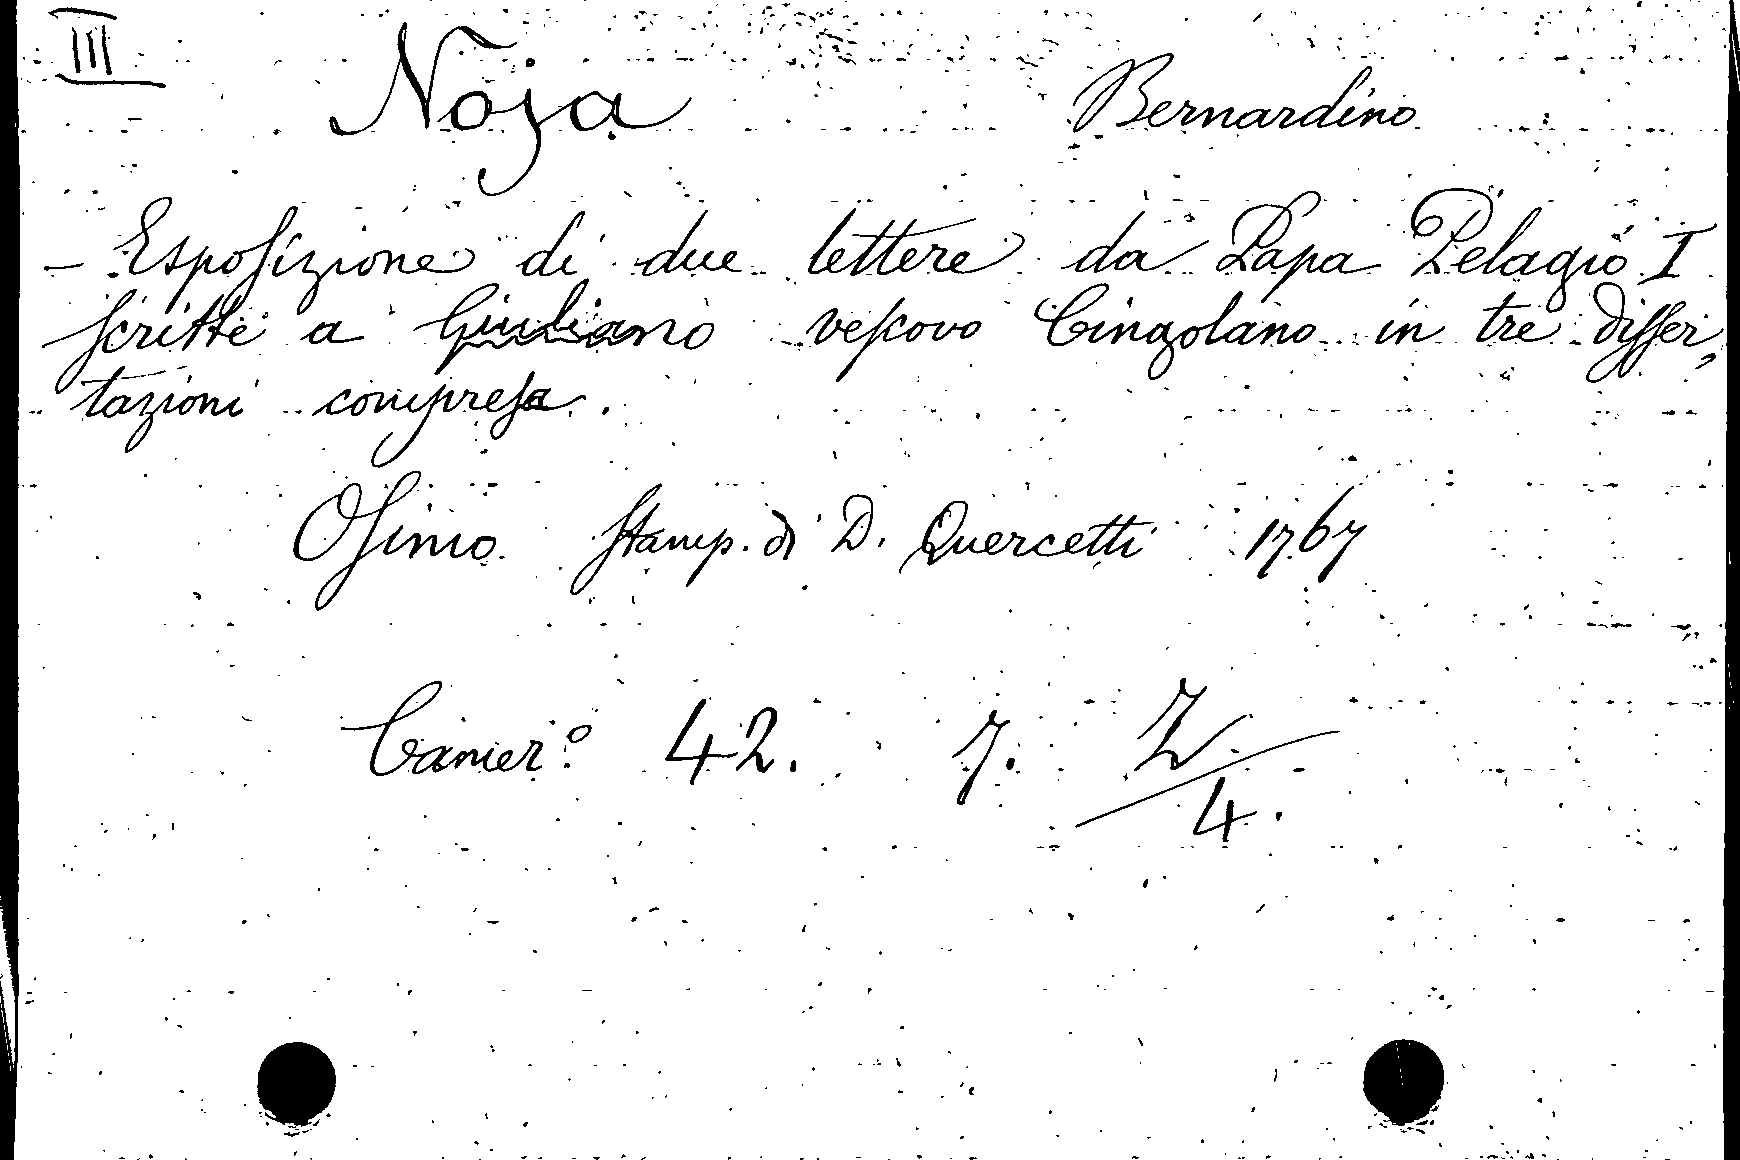 III
Noja Bernardino
- Esposizione di due lettere da Papa Pelagio I
scritte a Giuliano vescovo Cingolano in tre disser,
tazioni compresa.
Osimo Stamp. di D. Quercetti 1767
Camer.º 42. 7. Z/4.